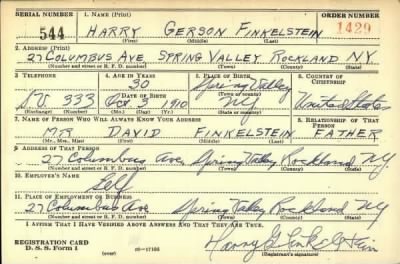 SERIAL NUMBER 1. NAME (Print) ORDER NUMBER
544 HARRY GERSON FINKELSTEIN 1429
(First) (Middle) (Last)
2. ADDRESS (Print)
27 COLUMBUS AVE SPRING VALLEY ROCKLAND N.Y.
(Number and street or R. F. D. number) (Town) (County) (State)
3. TELEPHONE 4. AGE IN YEARS 5. PLACE OF BIRTH 6. COUNTRY OF CITIZENSHIP
30 Spring Valley
S.V. 333 DATE OF BIRTH (Town or county)
Oct. 3 1910 NY United States
(Exchange) (Number) (Mo.) (Day) (Yr.) (State or country)
7. NAME OF PERSON WHO WILL ALWAYS KNOW YOUR ADDRESS 8. RELATIONSHIP OF THAT PERSON
MR DAVID FINKELSTEIN FATHER
(Mr., Mrs., Miss) (First) (Middle) (Last)
9. ADDRESS OF THAT PERSON
27 Columbus Ave, Spring Valley Rockland NY.
(Number and street or R. F. D. number) (Town) (County) (State)
10. EMPLOYER'S NAME
Self
11. PLACE OF EMPLOYMENT OR BUSINESS
27 Columbus Ave Spring Valley Rockland NY
(Number and street or R. F. D. number) (Town) (County) (State)
I AFFIRM THAT I HAVE VERIFIED ABOVE ANSWERS AND THAT THEY ARE TRUE.
REGISTRATION CARD
D. S. S. Form 1 (over) 16-17105 Harry G Finkelstein
(Registrant's signature)